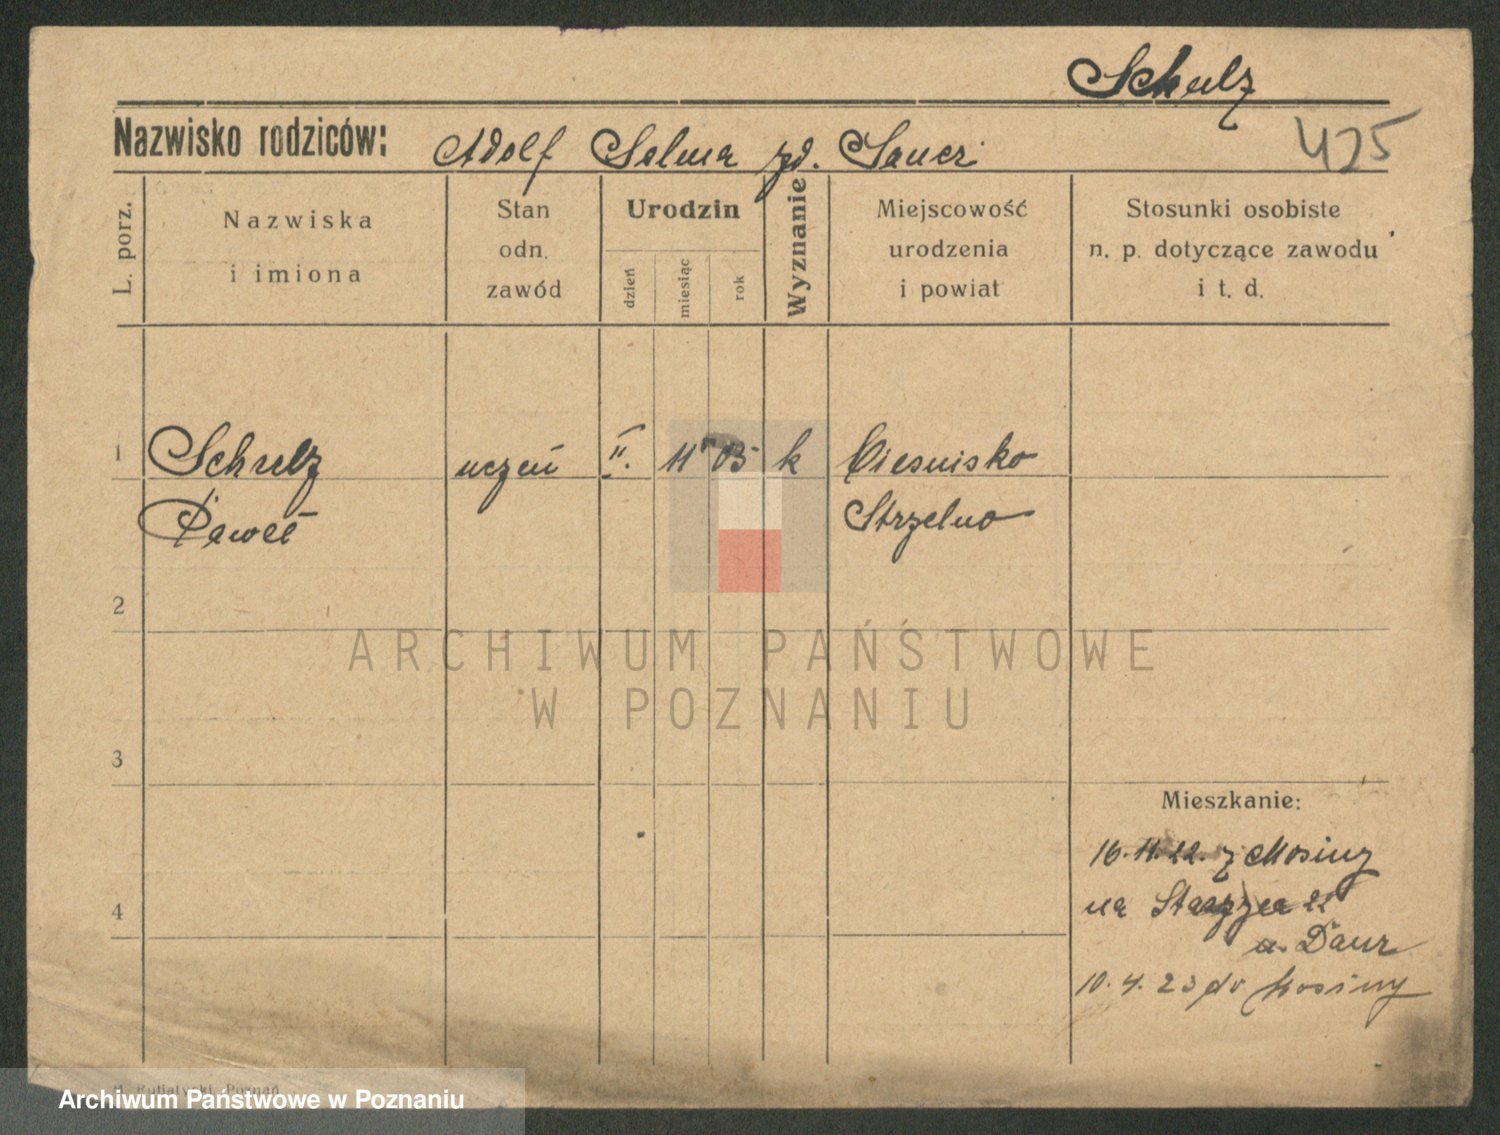 Schulz
Nazwisko rodziców: Adolf Selma zd. Sauer
425
L. porz.
Nazwiska
i imiona
Stan
odn.
zawód
Urodzin
dzień
miesiąc
rok
Wyznanie
Miejscowość
urodzenia
i powiat
Stosunki osobiste
n. p. dotyczące zawodu
i t. d.
1 Schulz uczeń 11. 05 k Ciesnisko
Paweł Strzelno
2
3
4
Mieszkanie:
16.11.22. z Mosiny
na 22
u. Daur
10.4.23 do Mosiny
ARCHIWUM PAŃSTWOWE
W POZNANIU
Poznań
Archiwum Państwowe w Poznaniu